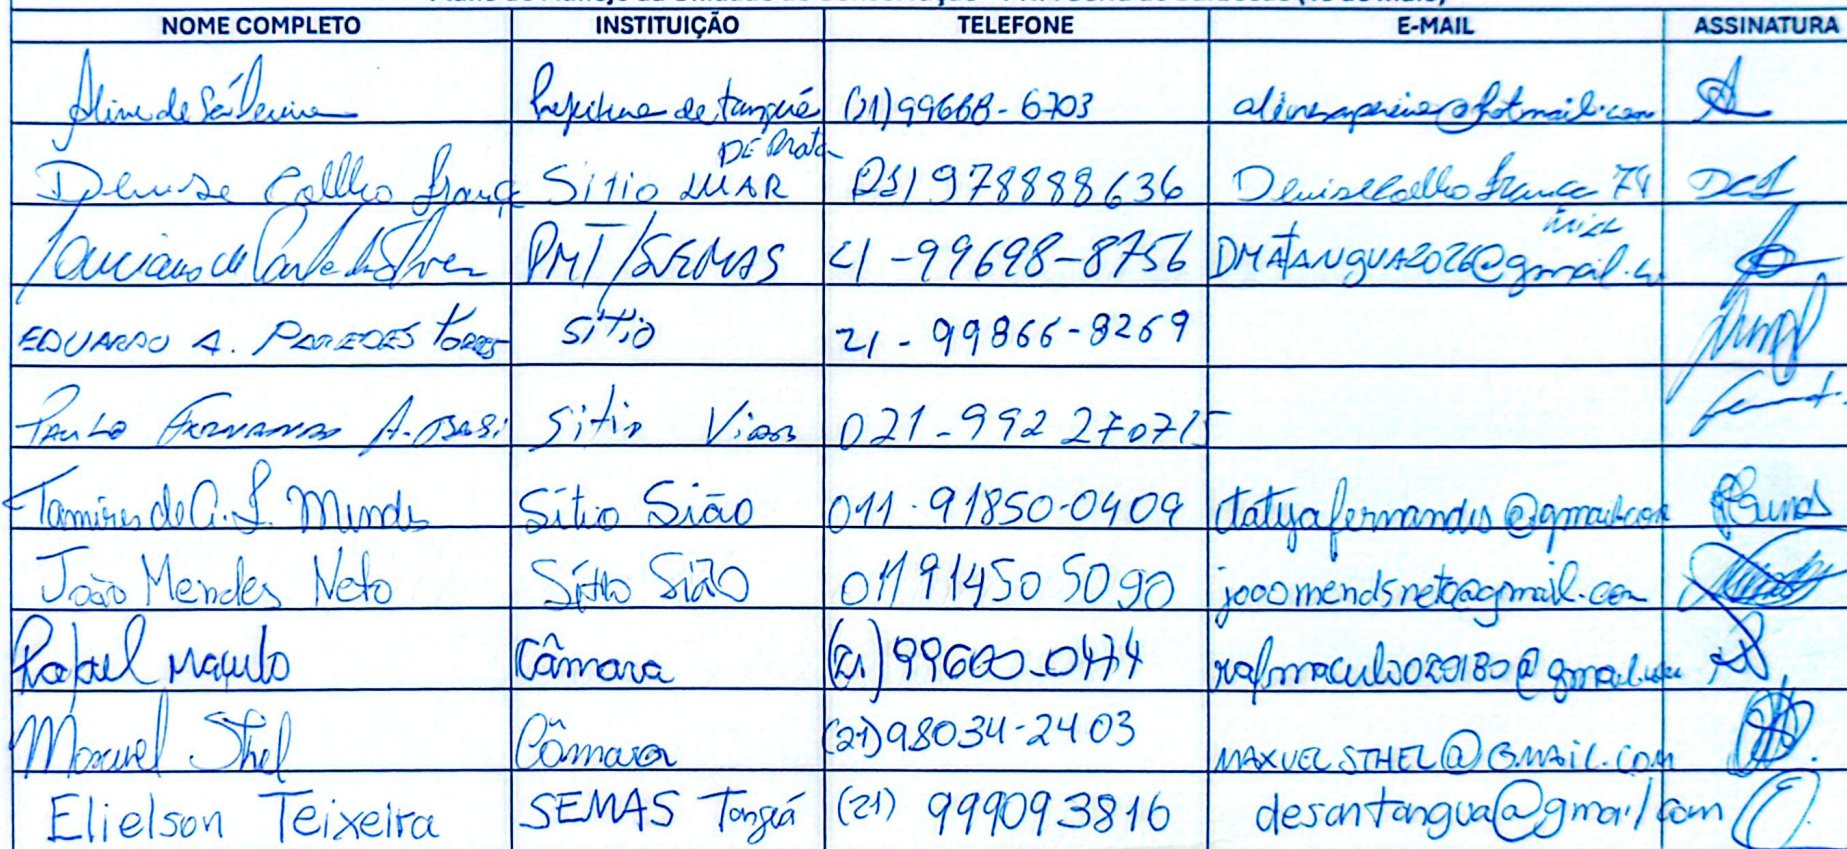 NOME COMPLETO INSTITUIÇÃO TELEFONE E-MAIL ASSINATURA
Aline de Sá Pereira Prefeitura de tanguá (21)99668-6703 alinesapereira@hotmail.com
Denise Coelho França Sitio LUAR DE Prata (21) 978888636 Denisecoelhofranca 74
Luciano de Silva PMT/SEMAS 21-99698-8756 DMATANGUA2026@gmail.
EDUARDO A. PAREDES TORRES SíTiO 21-99866-8269
PAULO FERNANDO A. Sitio 021-992 270715
Tamires de A. F. Mendes Sítio Sião 011-91850-0409 @gmail.com
João Mendes Neto Sítio Sião 011914505090 joaomendsneto@gmail.com
Rafael Maculo Câmara (21) 99600-0474 rafmaculo020180@gmail.com
Maxuel Sthel Câmara (21)98034-2403 MAXUELSTHEL@GMAIL.COM
Elielson Teixeira SEMAS Tanguá (21) 999093816 desantangua@gmail.com